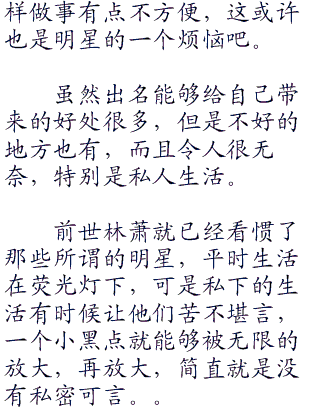 样做事有点不方便，这或许
也是明星的一个烦恼吧。
虽然出名能够给自己带
来的好处很多，但是不好的
地方也有，而且令人很无
奈，特别是私人生活。
前世林萧就已经看惯了
那些所谓的明星，平时生活
在荧光灯下，可是私下的生
活有时候让他们苦不堪言，
一个小黑点就能够被无限的
放大，再放大，简直就是没
有私密可言。。